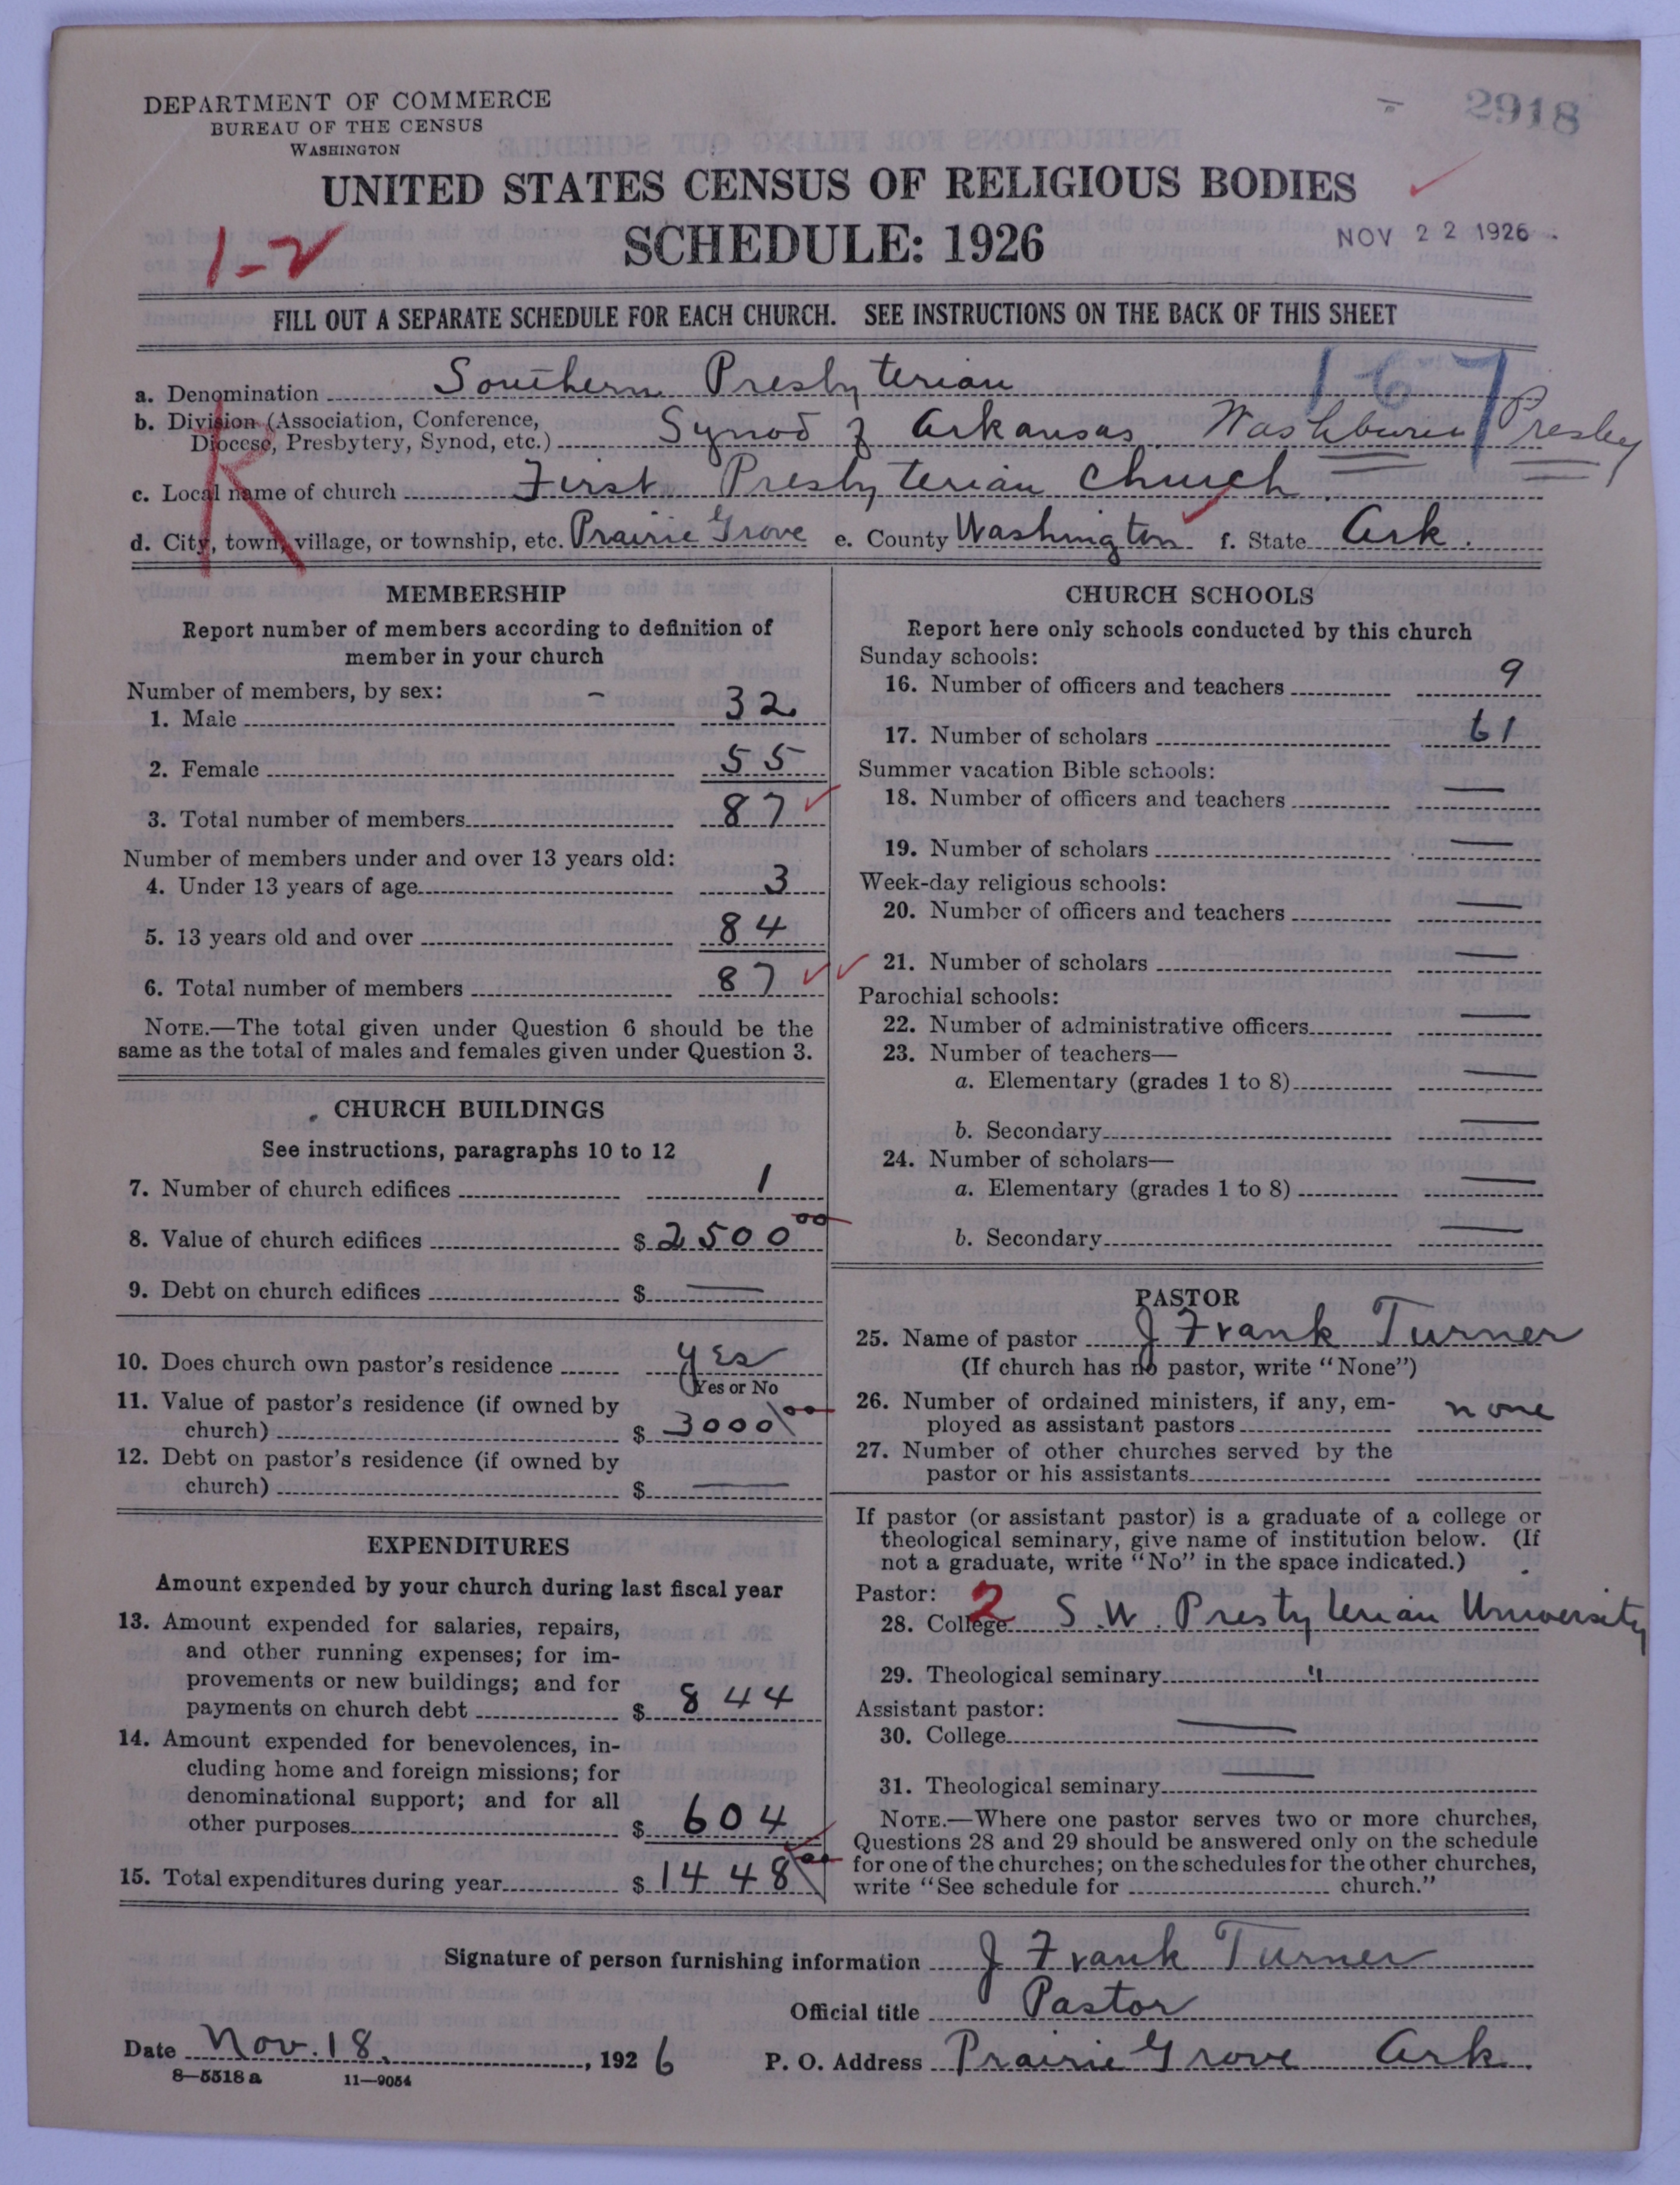 DEPARTMENT OF COMMERCE
BUREAU OF THE CENSUS
WASHINGTON
2918
UNITED STATES CENSUS OF RELIGIOUS BODIES
SCHEDULE: 1926
1-2
NOV 22 1926
FILL OUT A SEPARATE SCHEDULE FOR EACH CHURCH. SEE INSTRUCTIONS ON THE BACK OF THIS SHEET
167
R
a. Denomination Southern Presbyterian
b. Division (Association, Conference,
Diocese, Presbytery, Synod, etc.) Synod of Arkansas. Washburn Presby
c. Local name of church First Presbyterian Church.
d. City, town, village, or township, etc. Prairie Grove e. County Washington f. State Ark.
MEMBERSHIP
Report number of members according to definition of
member in your church
Number of members, by sex:
1. Male 32
2. Female 55
3. Total number of members 87
Number of members under and over 13 years old:
4. Under 13 years of age 3
5. 13 years old and over 84
6. Total number of members 87
NOTE.—The total given under Question 6 should be the
same as the total of males and females given under Question 3.
CHURCH BUILDINGS
See instructions, paragraphs 10 to 12
7. Number of church edifices 1
8. Value of church edifices $ 2500 00
9. Debt on church edifices $ —
10. Does church own pastor's residence yes
Yes or No
11. Value of pastor's residence (if owned by
church) $ 3000 00
12. Debt on pastor's residence (if owned by
church) $ —
EXPENDITURES
Amount expended by your church during last fiscal year
13. Amount expended for salaries, repairs,
and other running expenses; for im-
provements or new buildings; and for
payments on church debt $ 844
14. Amount expended for benevolences, in-
cluding home and foreign missions; for
denominational support; and for all
other purposes $ 604
15. Total expenditures during year $ 1448 00
CHURCH SCHOOLS
Report here only schools conducted by this church
Sunday schools:
16. Number of officers and teachers 9
17. Number of scholars 61
Summer vacation Bible schools:
18. Number of officers and teachers —
19. Number of scholars —
Week-day religious schools:
20. Number of officers and teachers —
21. Number of scholars —
Parochial schools:
22. Number of administrative officers —
23. Number of teachers—
a. Elementary (grades 1 to 8) —
b. Secondary —
24. Number of scholars—
a. Elementary (grades 1 to 8) —
b. Secondary —
PASTOR
25. Name of pastor J Frank Turner
(If church has no pastor, write "None")
26. Number of ordained ministers, if any, em-
ployed as assistant pastors none
27. Number of other churches served by the
pastor or his assistants
If pastor (or assistant pastor) is a graduate of a college or
theological seminary, give name of institution below. (If
not a graduate, write "No" in the space indicated.)
Pastor: 2
28. College S.W. Presbyterian University
29. Theological seminary "
Assistant pastor:
30. College —
31. Theological seminary —
NOTE.—Where one pastor serves two or more churches,
Questions 28 and 29 should be answered only on the schedule
for one of the churches; on the schedules for the other churches,
write "See schedule for church."
Signature of person furnishing information J Frank Turner
Official title Pastor
Date Nov. 18, 1926 P. O. Address Prairie Grove Ark.
8—5518 a 11—9054